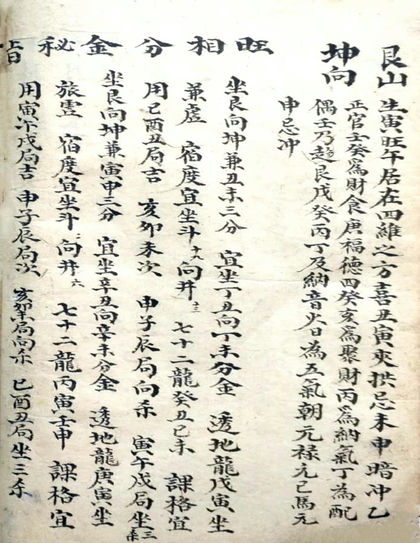 艮山 生寅旺午居在四維之方喜丑寅夾拱忌未申暗冲乙
坤向 正官壬癸為財食庚福德四癸亥為聚財丙為納氣丁為配
偶壬乃趨艮戊癸丙丁及納音火日為五氣朝元祿元巳馬元
申忌冲
旺相分金秘旨
坐艮向坤兼丑未三分 宜坐丁丑向丁未分金 透地龍戊寅坐
兼虛 宿度宜坐斗十九向井 七十二龍癸丑己未 課格宜
用巳酉丑局吉 亥卯未次 申子辰局向杀 寅午戌局坐三杀
坐艮向坤兼寅申三分 宜坐辛丑向辛未分金 透地龍庚寅坐
旅 宿度宜坐斗 向井六 七十二龍丙寅壬申 課格宜
用寅午戌局吉 申子辰局次 亥卯 局向杀 巳酉丑局坐三杀